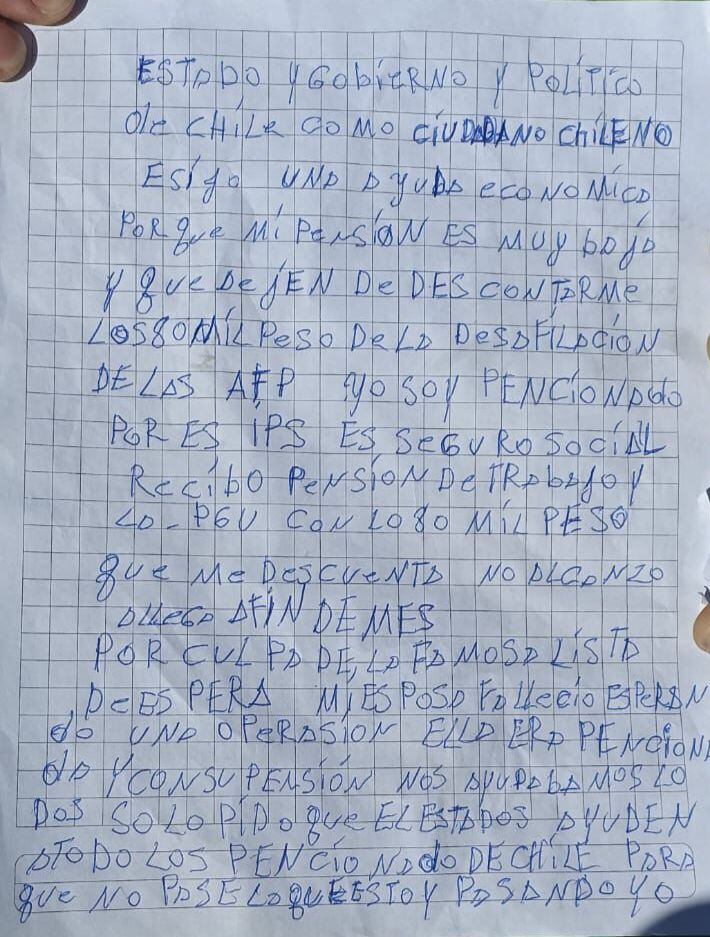 ESTADO Y GObiERNO Y POLíTico
de CHiLe COMO CiUDADANO CHiLENO
ESijo UNA AYUDA ecoNOMíCA
PORque Mi PeNSiÓN ES MUY bAjA
Y que DejEN De DESCONTARMe
LOS 80 MiL PeSO De LA DeSAFiLACiÓN
DE LAS AFP YO SOY PENCiONAdo
POR ES iPS ES SEGURO SOCiAL
ReCibO PeNSiÓN De TRAbAjO Y
LA-PGU CON LO 80 MiL PESO
que Me DeSCUeNTA NO ALCANZO
ALLEGA AFiN DE MES
POR CULPA DE, LA FAMOSA LiSTA
De ESPERA Mi ESPOSA FALLeCiO ESPERAN
do UNA OPeRASiON ELLA ERA PENCiONA
dA Y CON SU PENSiÓN NOS AYUDAbAMOS LO
DOS SOLO PiDO que EL ESTADOS AYUDEN
ATODO LOS PENCiONAdo DE CHiLE PARA
que NO PASE LO que ESTOY PASANDO YO